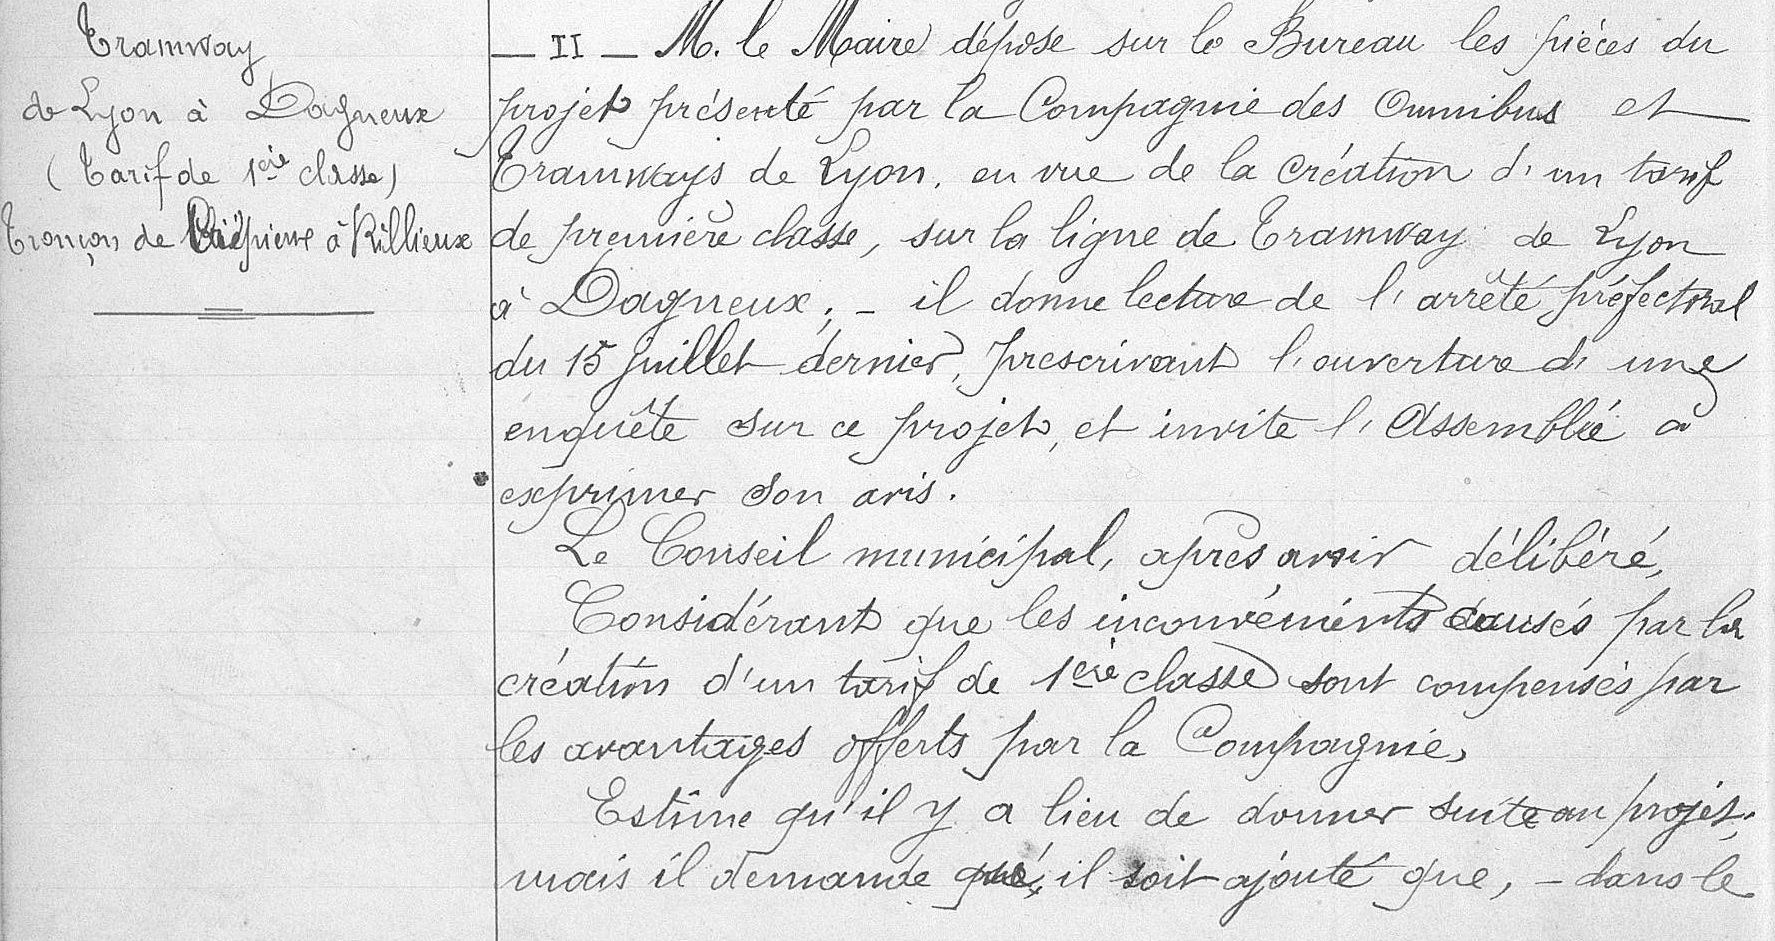 Tramway
de Lyon à Dagneux
(Tarif de 1ère classe)
Tronçon de Crépieux à Rillieux
— II — M. le Maire dépose sur le Bureau les pièces du
projet présenté par la Compagnie des Omnibus et
Tramways de Lyon, en vue de la création d'un tarif
de première classe, sur la ligne de Tramway de Lyon
à Dagneux; - il donne lecture de l'arrêté préfectoral
du 15 juillet dernier, prescrivant l'ouverture d'une
enquête sur ce projet, et invite l'Assemblée à
exprimer son avis.
Le Conseil municipal, après avoir délibéré,
Considérant que les inconvénients causés par la
création d'un tarif de 1ère classe sont compensés par
les avantages offerts par la Compagnie,
Estime qu'il y a lieu de donner suite au projet;
mais il demande qu'il soit ajouté que, - dans le